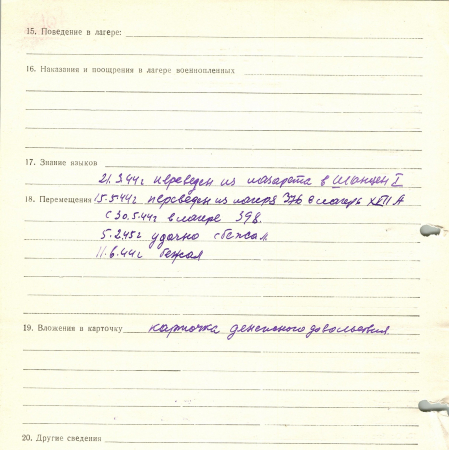 15. Поведение в лагере:
16. Наказания и поощрения в лагере военнопленных
17. Знание языков
21.3.44г переведен из лазарета в Шталаг I
18. Перемещения 15.5.44г переведен из лагеря 37б в лагерь XVII A
с 30.5.44г в лагере 398.
5.2.45г удачно сбежал
11.6.44г бежал
19. Вложения в карточку карточка денежного довольствия
20. Другие сведения